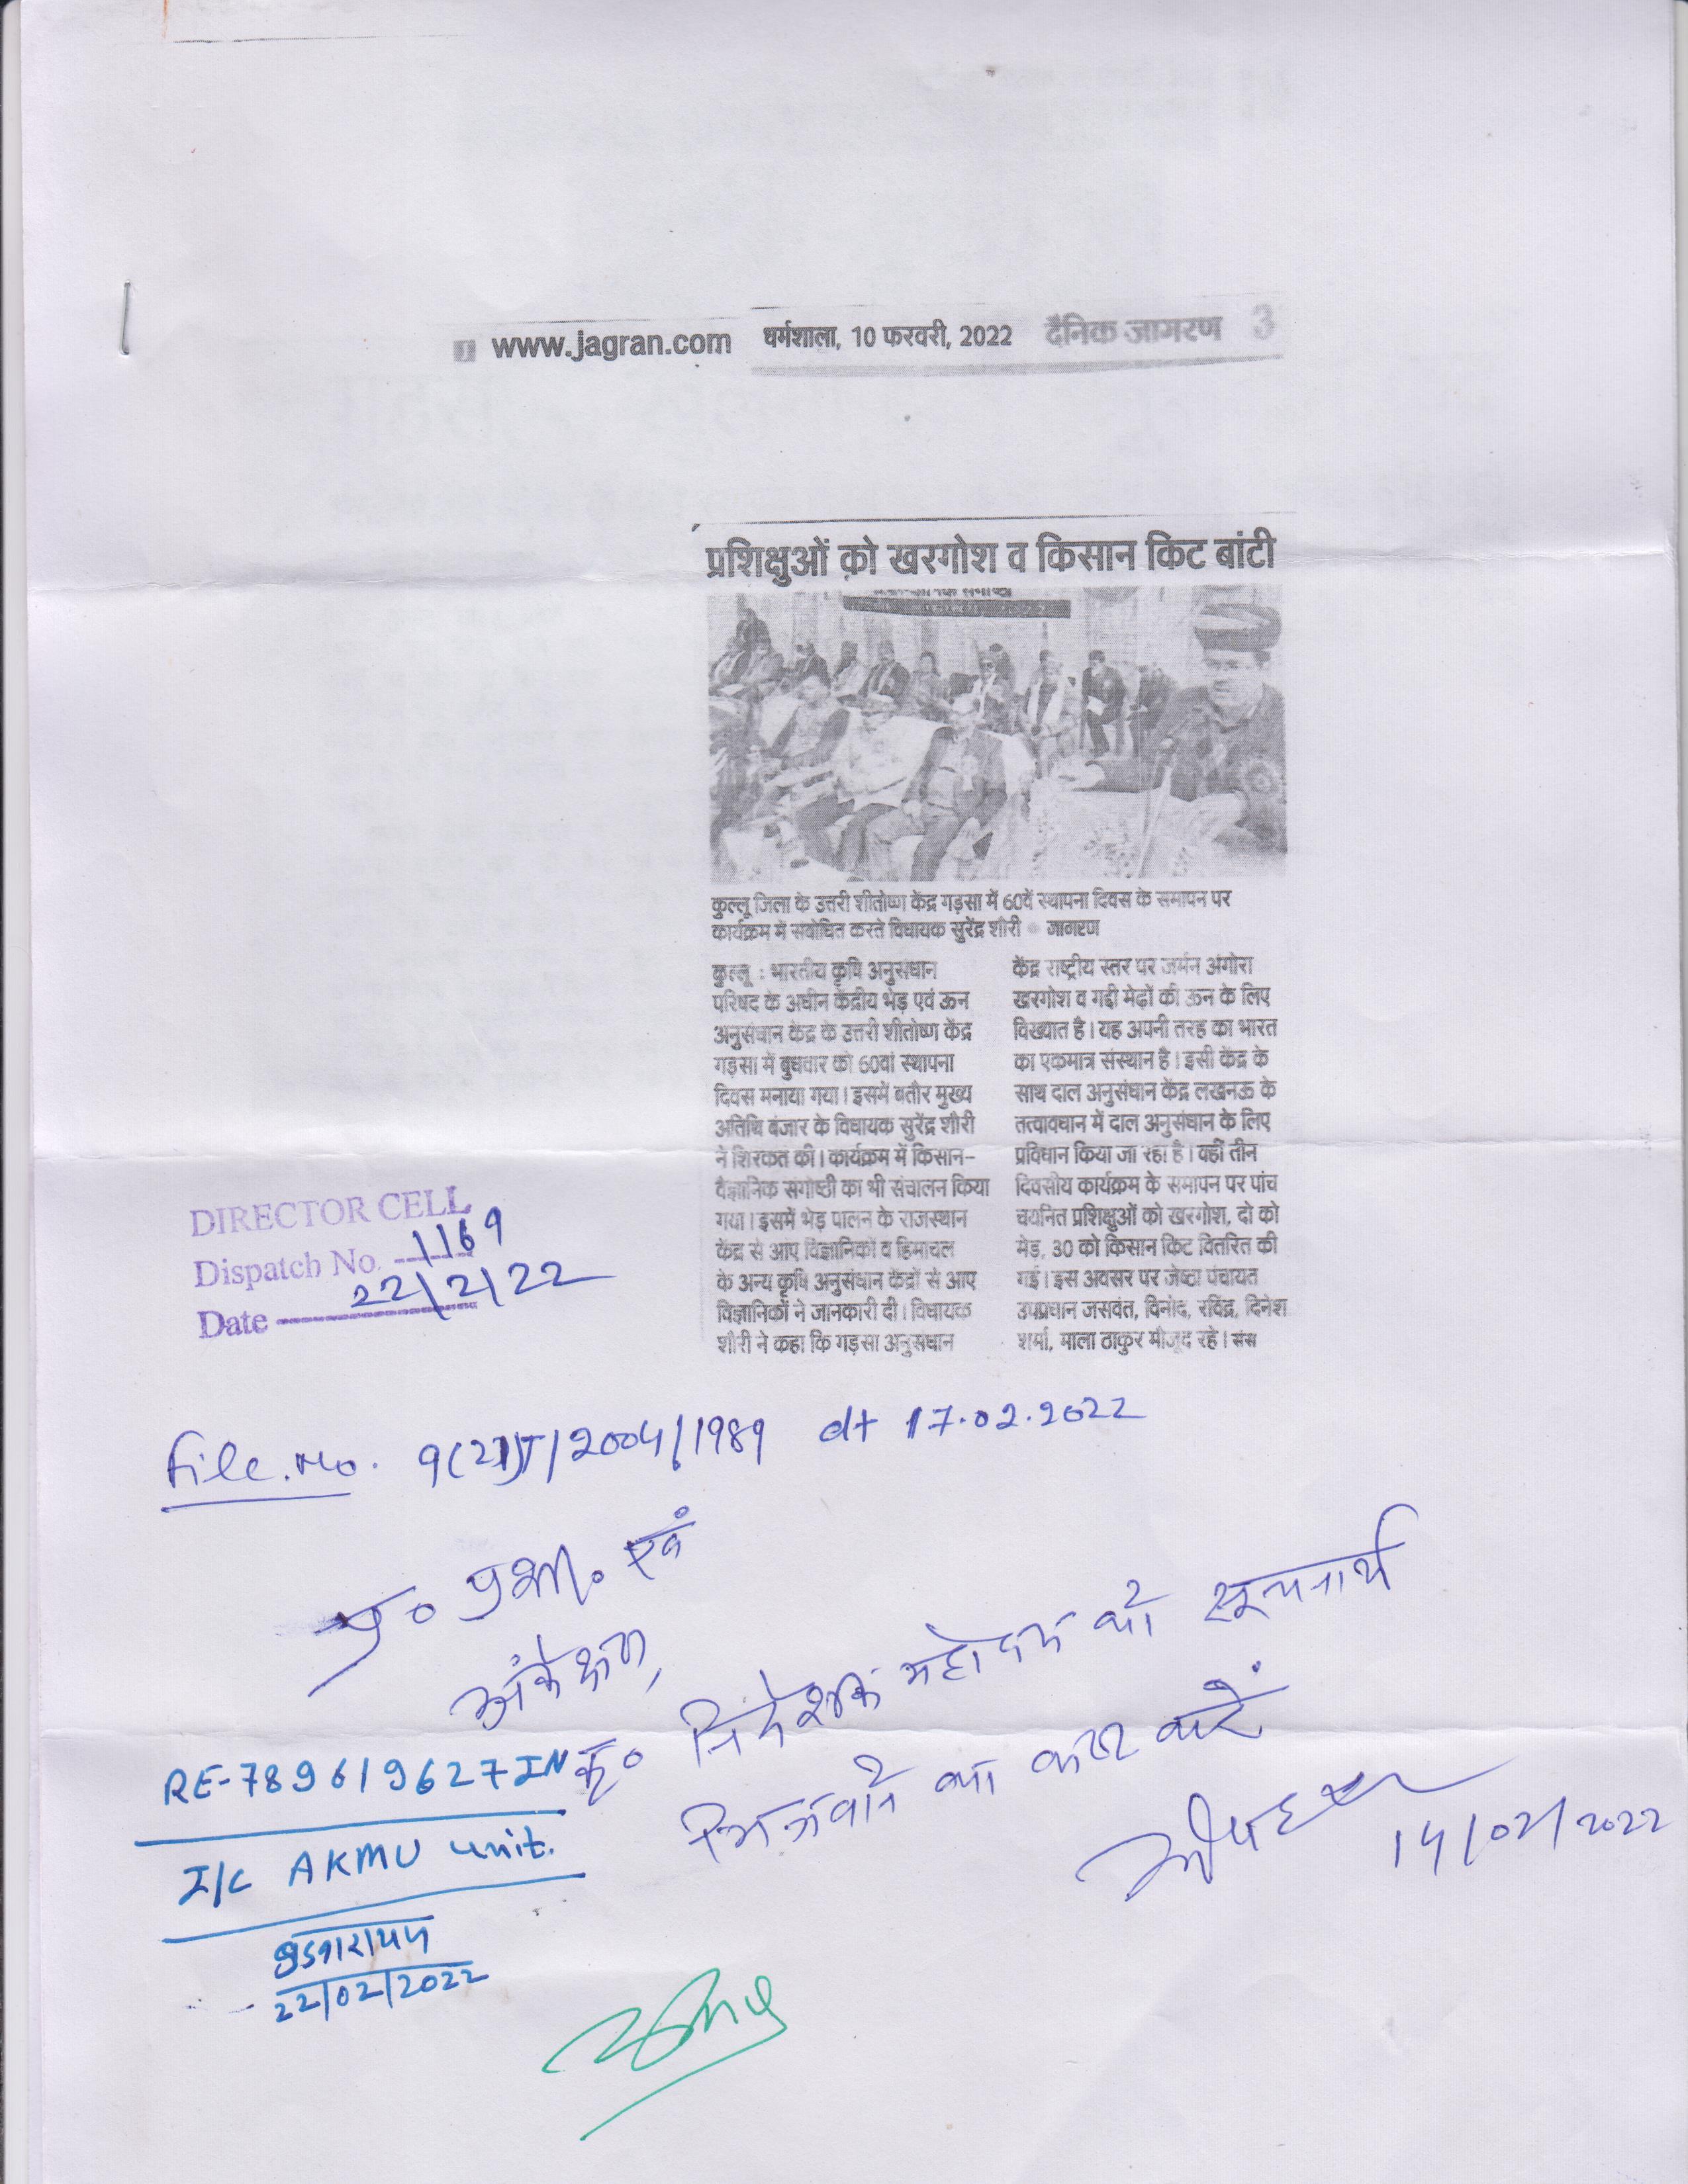 www.jagran.com धर्मशाला, 10 फरवरी, 2022 दैनिक जागरण 3
प्रशिक्षुओं को खरगोश व किसान किट बांटी
कुल्लू जिला के उत्तरी शीतोष्ण केंद्र गड़सा में 60वें स्थापना दिवस के समापन पर
कार्यक्रम में संबोधित करते विधायक सुरेंद्र शौरी ● जागरण
कुल्लू : भारतीय कृषि अनुसंधान
परिषद के अधीन केंद्रीय भेड़ एवं ऊन
अनुसंधान केंद्र के उत्तरी शीतोष्ण केंद्र
गड़सा में बुधवार को 60वां स्थापना
दिवस मनाया गया। इसमें बतौर मुख्य
अतिथि बंजार के विधायक सुरेंद्र शौरी
ने शिरकत की। कार्यक्रम में किसान-
वैज्ञानिक संगोष्ठी का भी संचालन किया
गया। इसमें भेड़ पालन के राजस्थान
केंद्र से आए विज्ञानिकों व हिमाचल
के अन्य कृषि अनुसंधान केंद्रों से आए
विज्ञानिकों ने जानकारी दी। विधायक
शौरी ने कहा कि गड़सा अनुसंधान
केंद्र राष्ट्रीय स्तर पर जर्मन अंगोरा
खरगोश व गद्दी मेढ़ों की ऊन के लिए
विख्यात है। यह अपनी तरह का भारत
का एकमात्र संस्थान है। इसी केंद्र के
साथ दाल अनुसंधान केंद्र लखनऊ के
तत्वावधान में दाल अनुसंधान के लिए
प्रविधान किया जा रहा है। वहीं तीन
दिवसीय कार्यक्रम के समापन पर पांच
चयनित प्रशिक्षुओं को खरगोश, दो को
मेड़, 30 को किसान किट वितरित की
गई। इस अवसर पर जेष्ठा पंचायत
उपप्रधान जसवंत, विनोद, रविंद्र, दिनेश
शर्मा, माला ठाकुर मौजूद रहे। संस
DIRECTOR CELL
Dispatch No. 1169
Date 22/2/22
File. No. 9(21)T/2004/1989 dt 17.02.2022
प्र० प्रभा. एवं
अंकेक्षण,
कृ० निदेशक महोदय को सूचनार्थ
भिजवाने का कष्ट करें
14/02/2022
RE-789619627IN
I/C AKMU unit.
22/02/2022